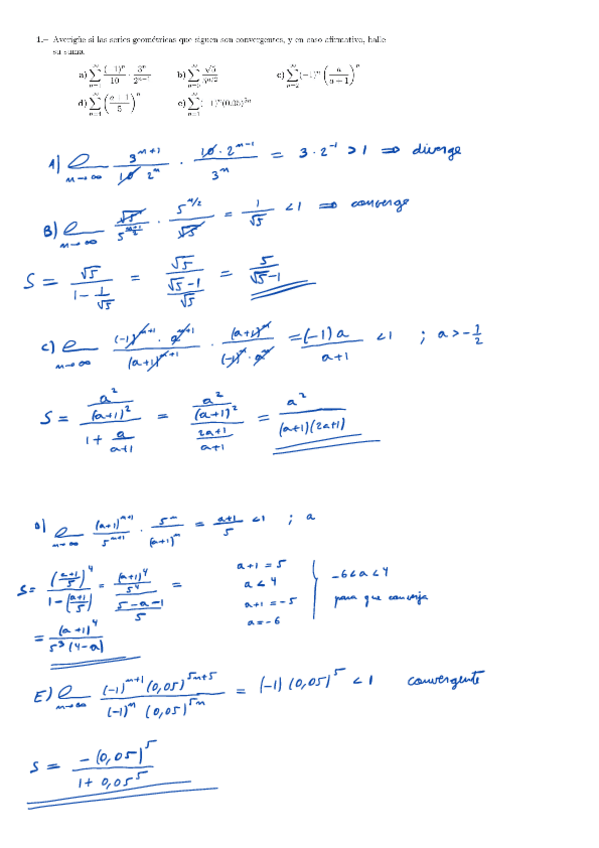 1.– Averigüe si las series geométricas que siguen son convergentes, y en caso afirmativo, halle
su suma.
a) ∑_{n=1}^{∞} (−1)^n/10 · 3^n/2^{n−1} b) ∑_{n=0}^{∞} √5/5^{n/2} c) ∑_{n=2}^{∞} (−1)^n (a/(a+1))^n
d) ∑_{n=4}^{∞} ((a+1)/5)^n e) ∑_{n=1}^{∞} (−1)^n(0,05)^{5n}
A) ℓ_{n→∞} 3^{n+1}/(10 2^n) · (10 · 2^{n−1})/3^n = 3 · 2^{-1} > 1 ⇒ diverge
B) ℓ_{n→∞} √5/5^{(n+1)/2} · 5^{n/2}/√5 = 1/√5 < 1 ⇒ converge
S = √5/(1 − 1/√5) = √5/((√5−1)/√5) = 5/(√5−1)
C) ℓ_{n→∞} ((−1)^{n+1} · a^{n+1})/(a+1)^{n+1} · (a+1)^n/((−1)^n · a^n) = (−1)a/(a+1) < 1 ; a > −1/2
S = (a²/(a+1)²)/(1 + a/(a+1)) = (a²/(a+1)²)/((2a+1)/(a+1)) = a²/((a+1)(2a+1))
D) ℓ_{n→∞} (a+1)^{n+1}/5^{n+1} · 5^n/(a+1)^n = (a+1)/5 < 1 ; a
S = ((a+1)/5)^4/(1−((a+1)/5)) = ((a+1)^4/5^4)/((5−a−1)/5) =
= (a+1)^4/(5^3(4−a))
a+1 = 5
a < 4
a+1 = −5
a = −6
−6 < a < 4
para que converja
E) ℓ_{n→∞} ((−1)^{n+1} (0,05)^{5n+5})/((−1)^n (0,05)^{5n}) = (−1) (0,05)^5 < 1 convergente
S = −(0,05)^5/(1 + 0,05^5)